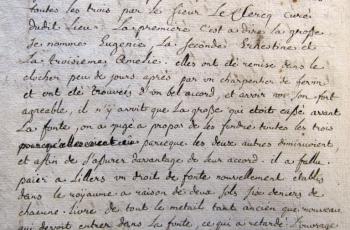 toutes les trois par le sieur Le Clercq curé
dudit lieu. La premiere c'est a dire la grosse
se nommes Eugenie La seconde Ernestine et
La troisieme Amelie. elles ont été remise dans le
clocher peu de jours après par un charpentier de
et ont été trouvées d'un bel acord, et avoir un son fort
agreable, il n'y avoit que La grosse qui etoit cassé avant
La fonte, on a jugé a propos de les fondre toutes les trois
parceque les deux autres
et affin de s'assurer davantage de leur accord. il a fallu
paier a Lillers un droit de fonte nouvellement etablis
dans le royaume a raison de deux sols six deniers de
chacune Livre de tout le metail tant ancien que nouveau
qui devoit entrer dans La fonte, ce qui a retardé L'ouvrage